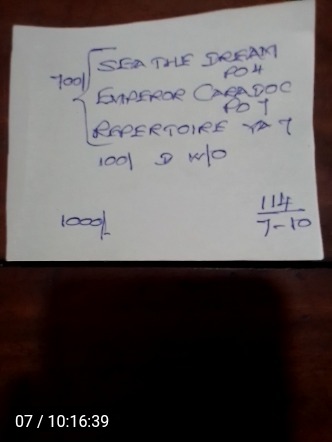 700/ SEA THE DREAM
PO 4
EMPEROR CARADOC
PO 7
REPERTOIRE YA 7
100/ D W/O
1000/- 114
7-10
07 / 10:16:39